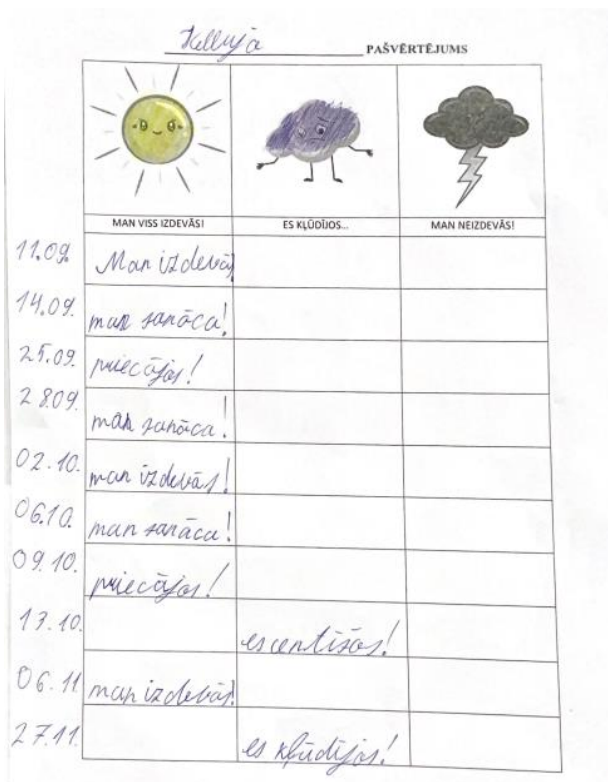 PAŠVĒRTĒJUMS
MAN VISS IZDEVĀS! ES KĻŪDĪJOS... MAN NEIZDEVĀS!
11.09. Man izdevās!
14.09. man sanāca!
25.09. priecājos!
28.09. man sanāca!
02.10. man izdevās!
06.10. man sanāca!
09.10. priecājos!
13.10. es centīšos!
06.11. man izdevās!
27.11. es kļūdījos!